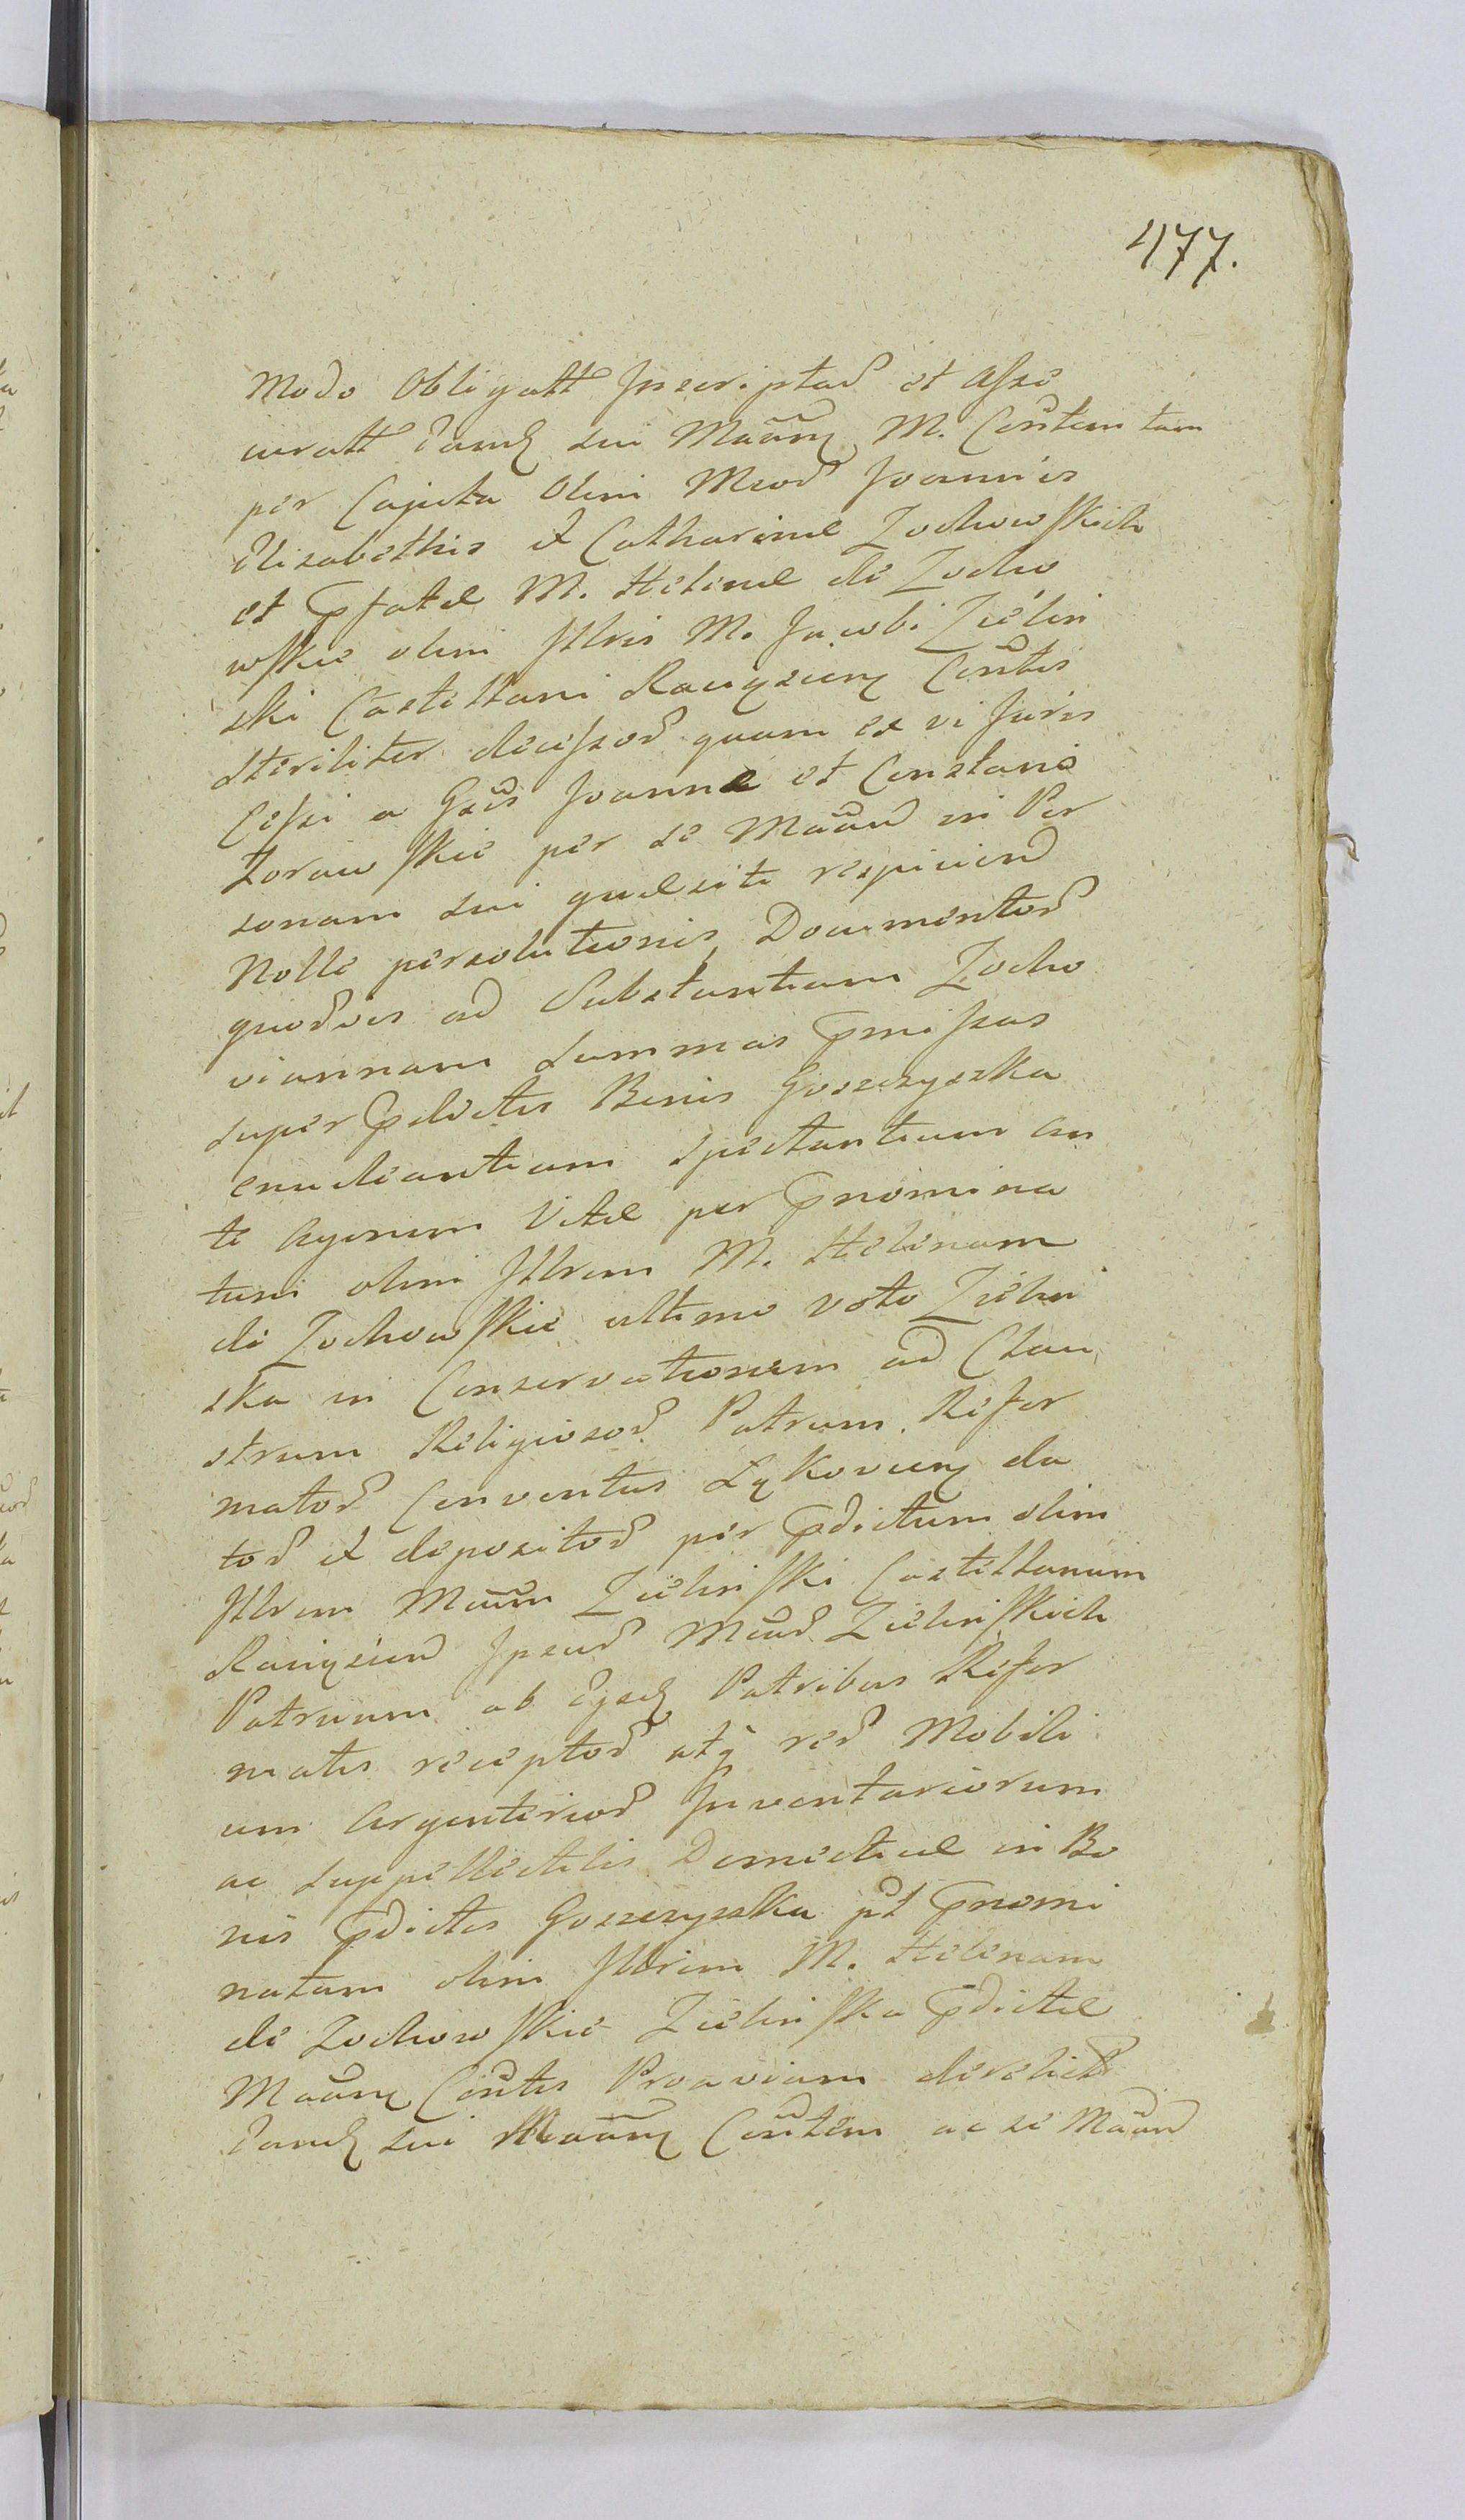 477.
Modo Obligatt Inscriptar et Asse
curatt Eand sui Maanq M. Conten tam
per Capita Olim Mcor Joannis
Elisabethis et Catharinæ Zochowskich
et Pfatæ M. Helenæ de Zocho
wskie olim Illris M. Jacobi Zielin
ski Castellani Raciązienq Contis
steriliter decessor quam ex vi Juris
Cessi a Gsis Joanne et Constanc
Zorawskie per se Maand in Per
sonam sui quæsiti respiciend
Nolle persolutionis, Documentor
quorvis ad Substantiam Zocho
viannam summas Pmissas
super Pdictis Bonis Goszczyszka
enudeantium spectantium an
te Agonem Vitæ per Pnomina
tum olim Illrem M. Helenam
de Zochowskie ultimo voto Zielin
ska in Conservationem ad Clau
strum Religiosor Patrum Refor
mator Conventus Łąkovienq da
tor et depositor per Pdictum olim
Illrem Maum Zielinski Castellanum
Raciąziend Ipsor Mcor Zielinskich
Patruum ab Eysd Patribus Refor
matis receptor atq rer Mobili
um Argenterior Inventariorum
ac suppellectilis Domesticæ in Bo
nis Pdictis Goszczyszka pt Pnomi
natam olim Illrem M. Helenam
de Zochowskie Zielinska Pdictæ
Maanq Contis Proaviam derelict
Eand sui Maanq Contem ac se Maand